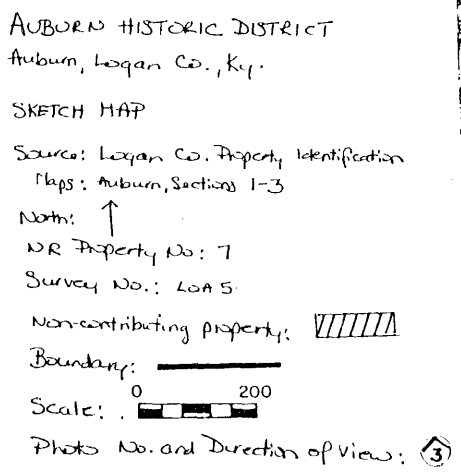 AUBURN HISTORIC DISTRICT
Auburn, Logan Co., Ky.
SKETCH MAP
Source: Logan Co. Property Identification
Maps: Auburn, Sections 1-3
North:
NR Property No: 7
Survey No.: LOA 5
Non-contributing property:
Boundary:
0 200
Scale:
Photo No. and Direction of View: 3